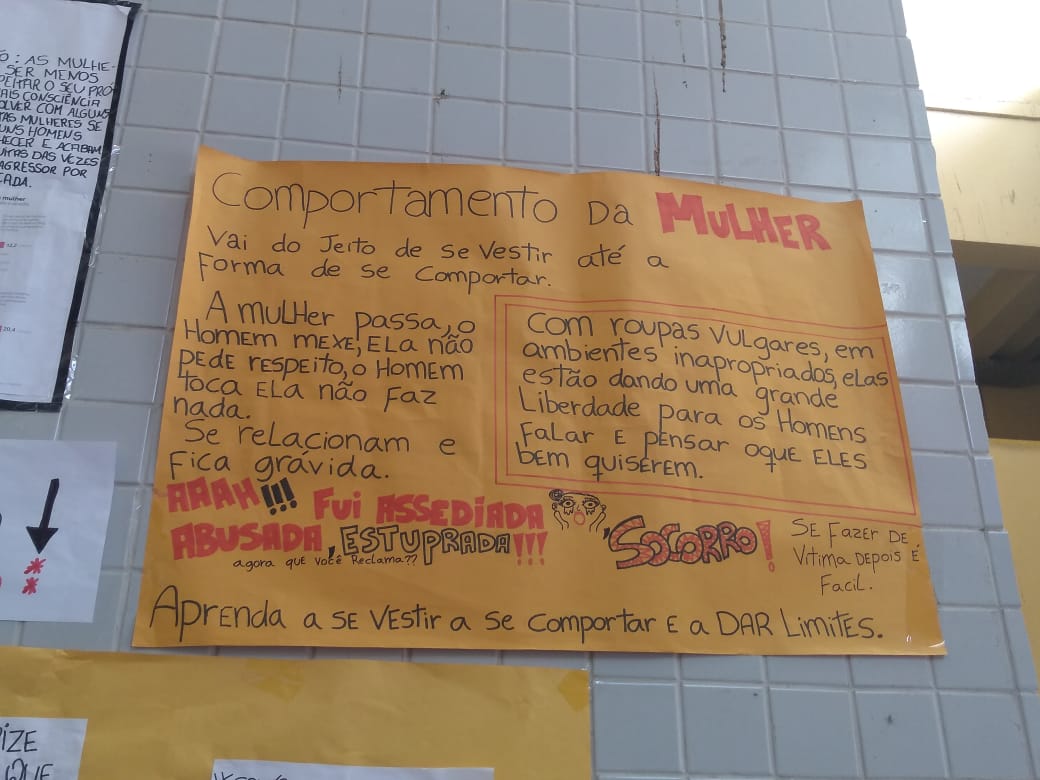 AS MULHE-
SER MENOS
O SEU PRÓ-
AIS CONSCIÊNCIA
OLVER COM ALGUNS
TAS MULHERES SE
UNS HOMENS
HECER E ACABAM
DAS VEZES
AGRESSOR POR
mulher
Comportamento Da MULHER
Vai do Jeito de se Vestir até a
Forma de se Comportar.
A mulher passa, o
Homem mexe, Ela não
pede respeito, o Homem
toca Ela não Faz
nada.
Se relacionam e
Fica grávida.
Com roupas Vulgares, em
ambientes inapropriados, elas
estão dando uma grande
Liberdade para os Homens
Falar E pensar oque ELES
bem quiserem.
AAAH!!! Fui ASSEDIADA
ABUSADA, ESTUPRADA!!!
, SOCORRO!
agora que você Reclama??
SE Fazer DE
Vitima Depois É
Facil.
Aprenda a SE VEStir a Se Comportar E a DAR LimitES.
IZE
QUE